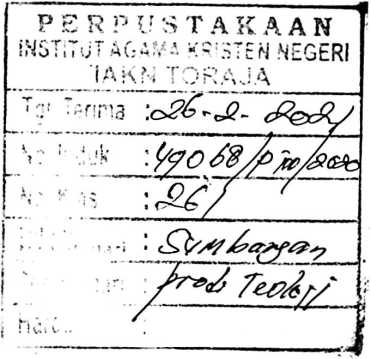 PERPUSTAKAAN
INSTITUT AGAMA KRISTEN NEGERI
IAKN TORAJA
Tgl Terima : 26-2-2021
No Induk : 49068/
: 26
: Sumbangan
prodi Teologi